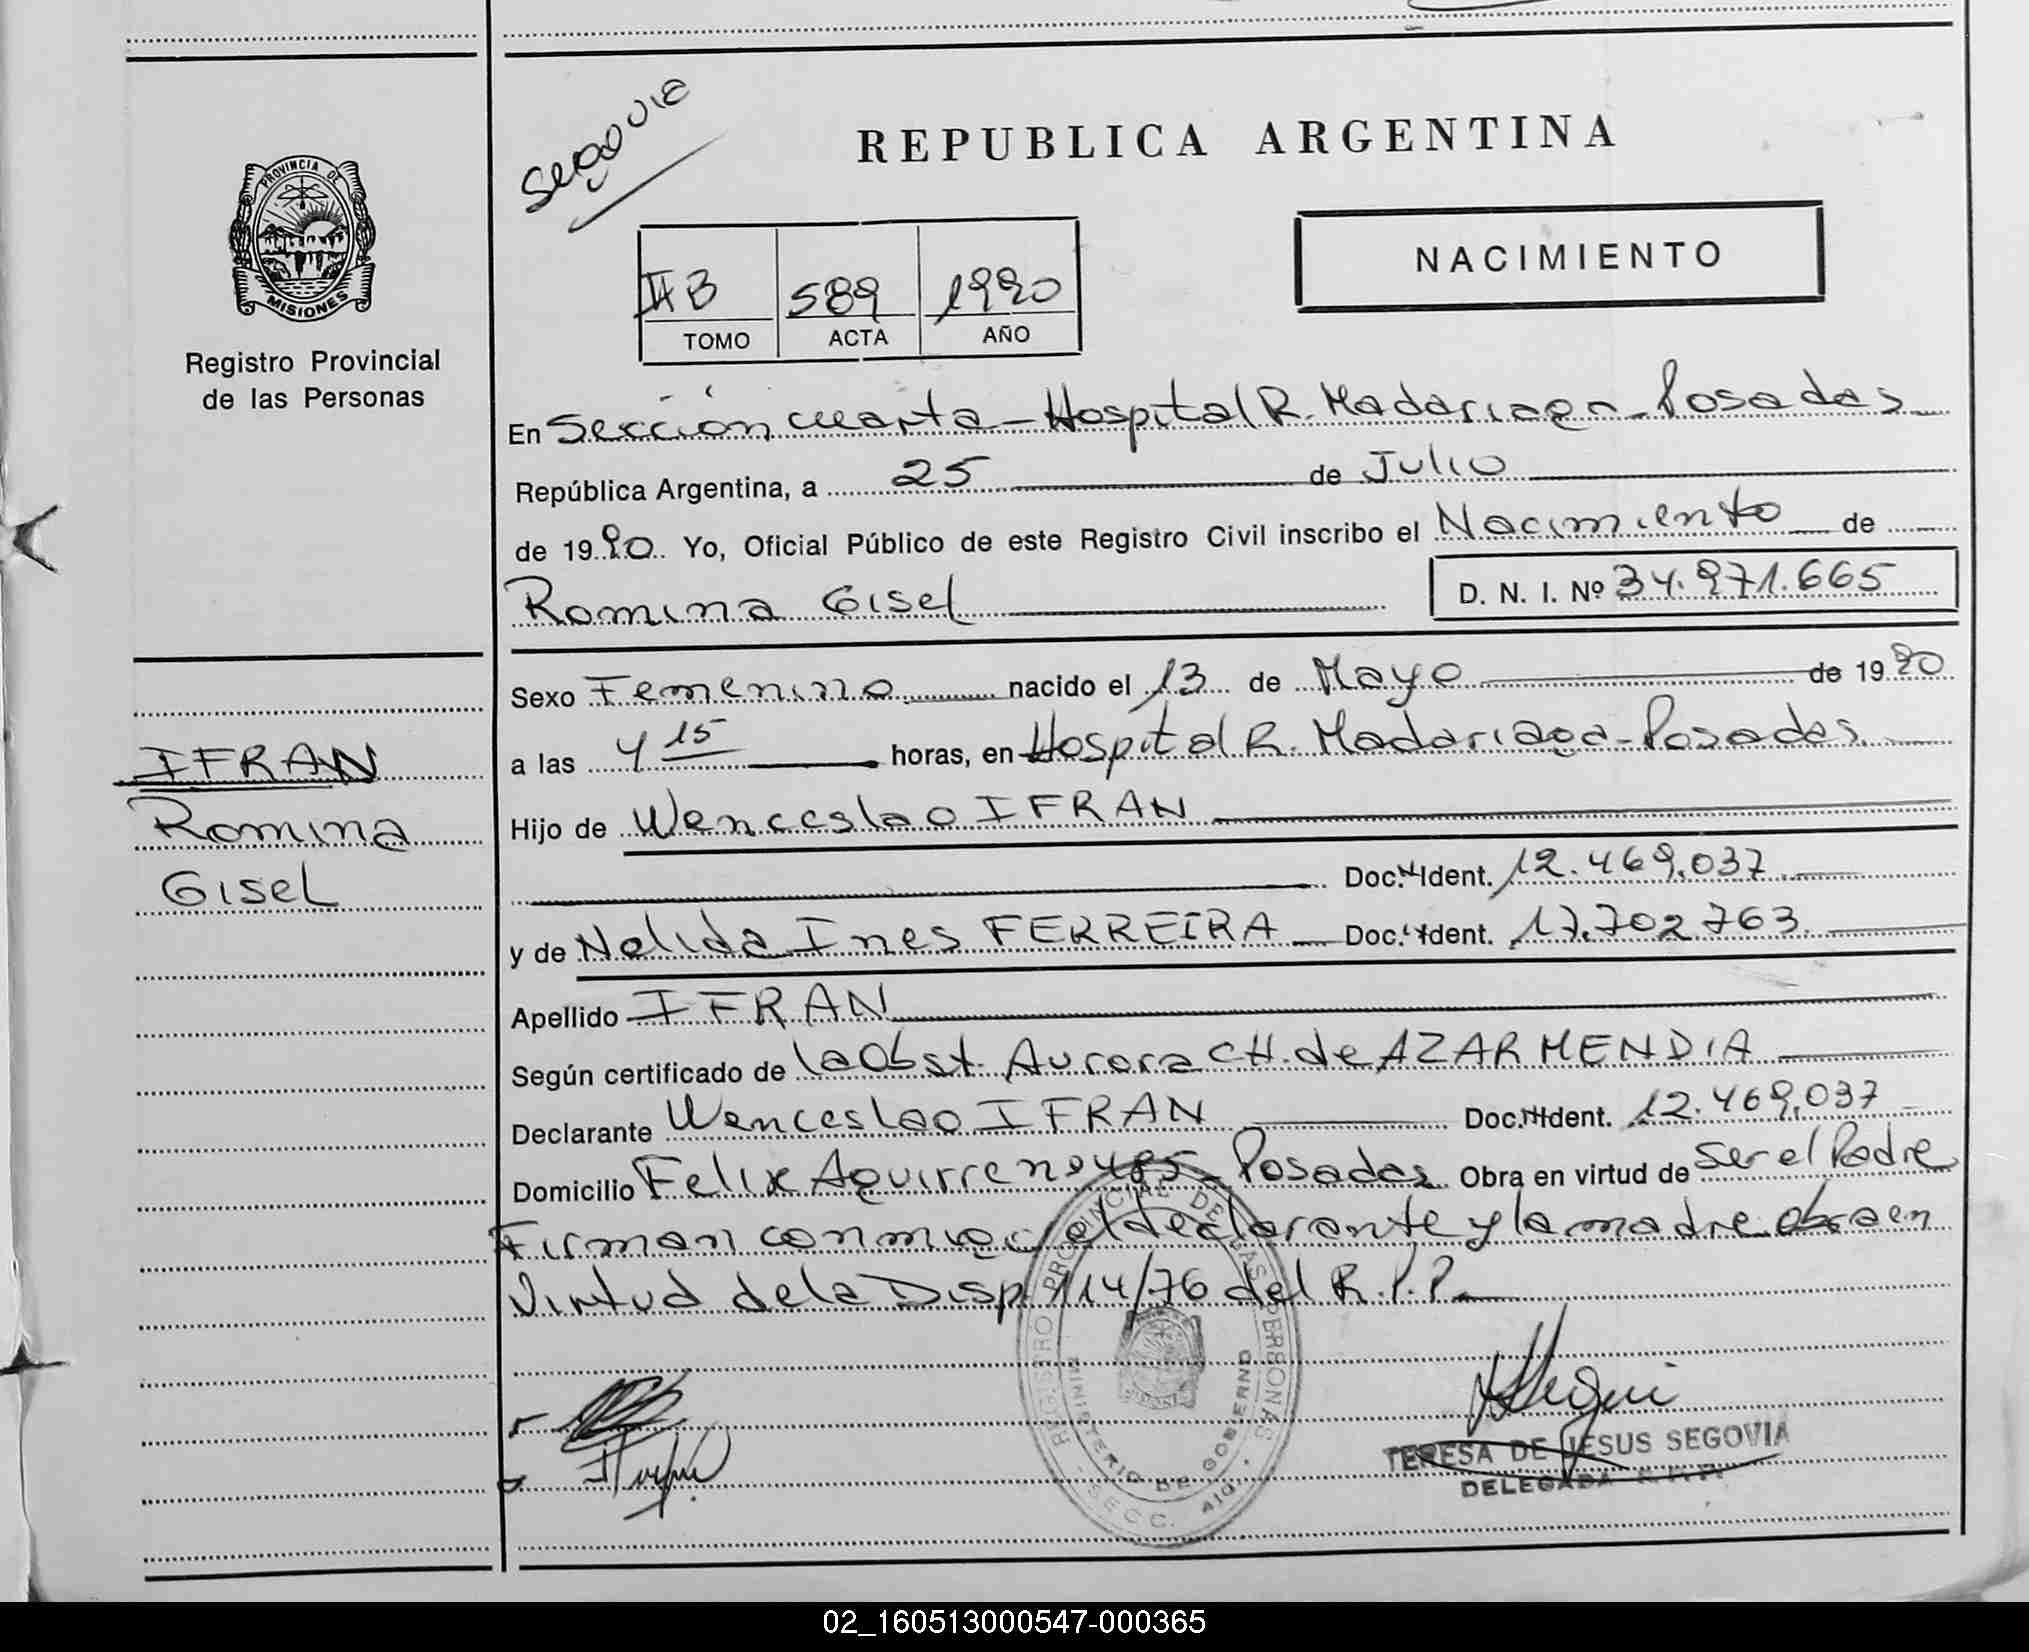 Segovia
REPUBLICA ARGENTINA
PROVINCIA DE
MISIONES
Registro Provincial
de las Personas
II B 589 1990
TOMO ACTA AÑO
NACIMIENTO
En Sección cuarta - Hospital R. Madariaga - Posadas
República Argentina, a 25 de Julio
de 1990 Yo, Oficial Público de este Registro Civil inscribo el Nacimiento de
Romina Gisel D. N. I. Nº 34.971.665
Sexo Femenino nacido el 13 de Mayo de 1990
a las 4 15 horas, en Hospital R. Madariaga - Posadas
IFRAN
Romina
Gisel
Hijo de Wenceslao IFRAN
Doc. Ident. 12.469.037
y de Nelida Ines FERREIRA Doc. Ident. 17.702.763
Apellido IFRAN
Según certificado de la Obst. Aurora CH. de AZARMENDIA
Declarante Wenceslao IFRAN Doc. Ident. 12.469.037
Domicilio Felix Aguirre Posadas Obra en virtud de ser el Padre
Firman conmigo el declarante y la madre obra en
Virtud de la Disp. 114/76 del R.P.P.
REGISTRO PROVINCIAL DE LAS PERSONAS
MINISTERIO DE GOBIERNO
SECC.
TERESA DE JESUS SEGOVIA
DELEGADA R.P.P.
02_160513000547-000365